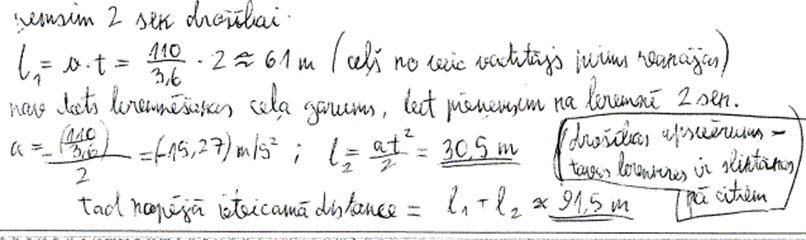 ņemsim 2 sek drošībai.
l₁ = v·t = 110/3,6 · 2 ≈ 61 m (ceļš ko veic vadītājs pirms reaģējas)
nav dots bremzēšanas ceļa garums, bet pieņemsim ka bremzē 2 sek.
a = -(110/3,6)/2 = (-15,27) m/s² ; l₂ = at²/2 = 30,5 m
drošības apsvērums -
tavas bremzes ir sliktākas
kā citiem
Tad kopējā ieteicamā distance = l₁ + l₂ ≈ 91,5 m